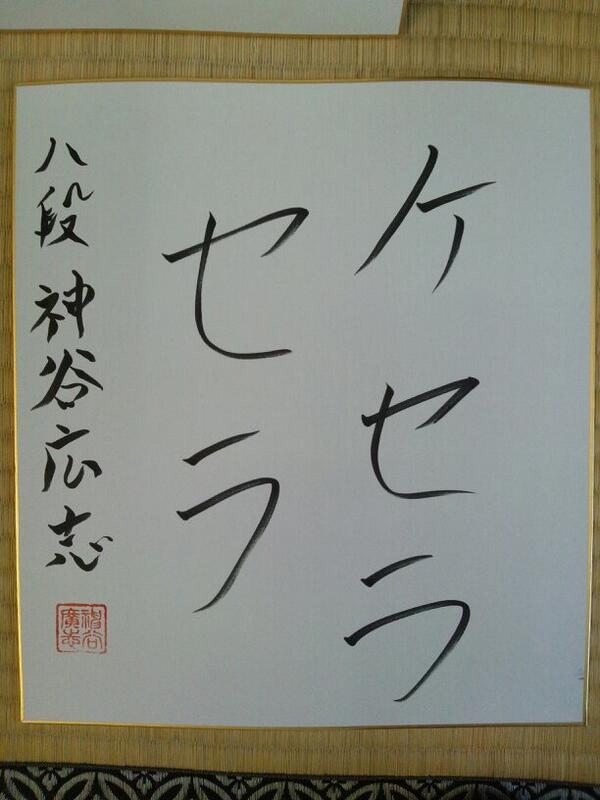 ケセラ
セラ
八段 神谷広志
神谷
廣志